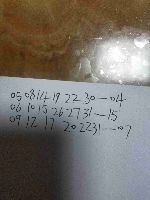 05 08 14 19 22 30—04
06 10 15 26 27 31—15
09 12 17 20 22 31—07